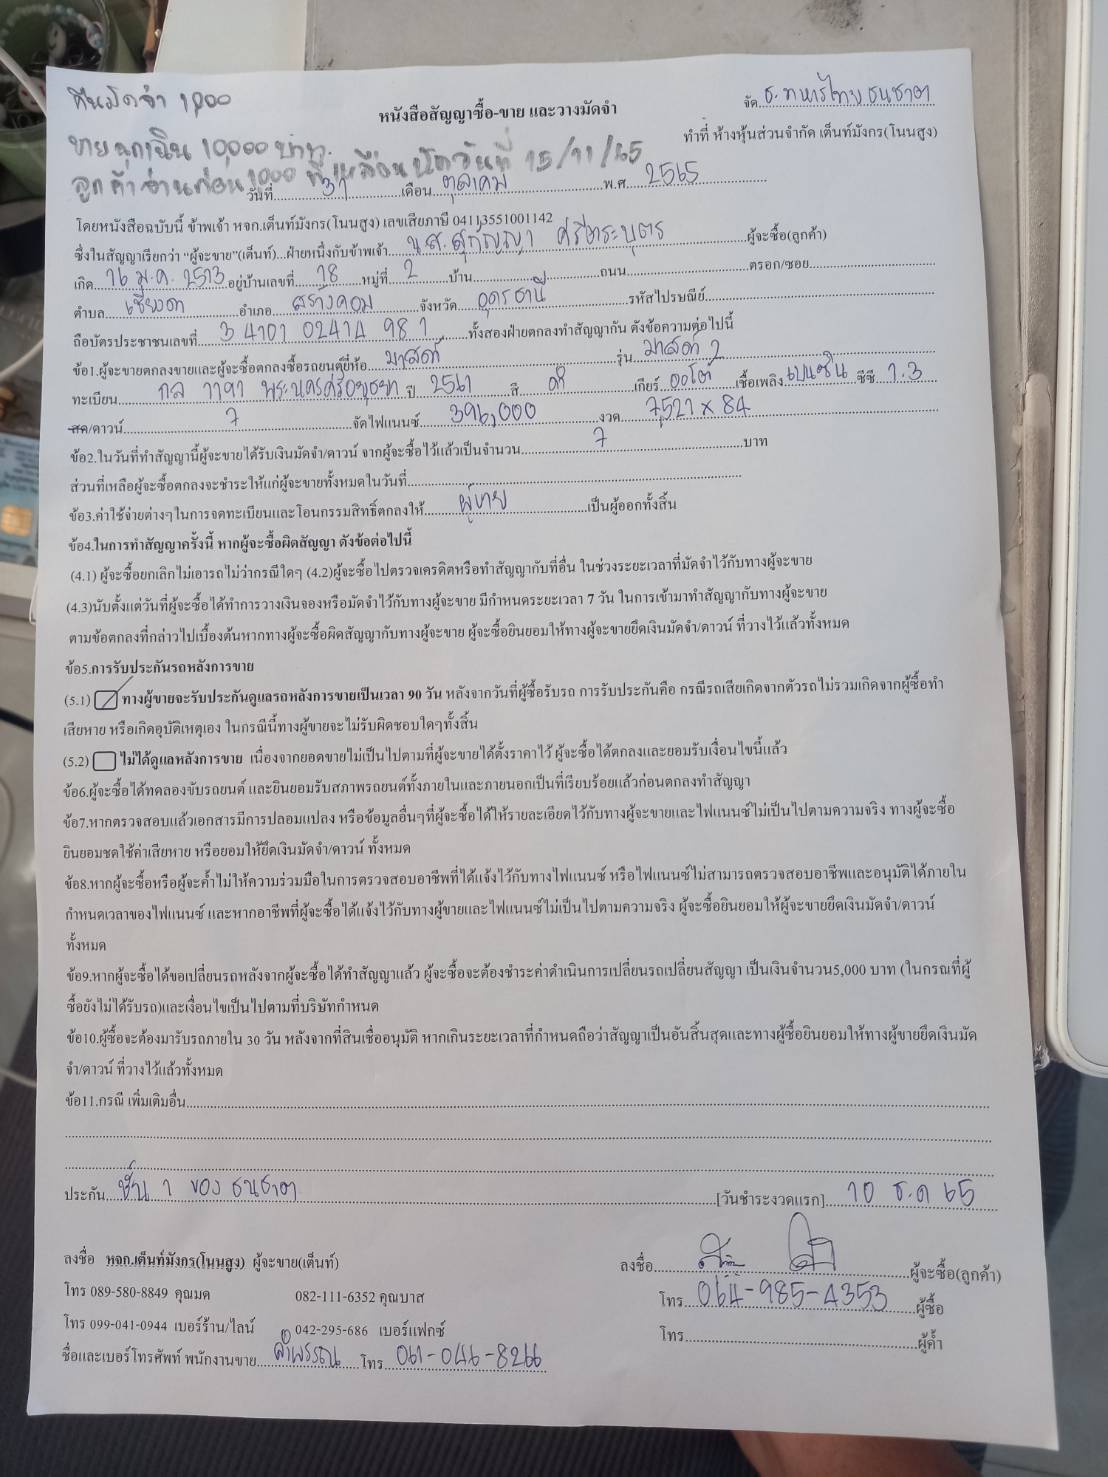 คืนมัดจำ 1,000
ขายฉุกเฉิน 10000 บาท.
ลูกค้าจ่ายก่อน 1000 ที่เหลือนัดวันที่ 15/11/65
จัด ธ.ทหารไทย ธนชาต
หนังสือสัญญาซื้อ-ขาย และวางมัดจำ
ทำที่ ห้างหุ้นส่วนจำกัด เต็นท์มังกร(โนนสูง)
วันที่ 31 เดือน ตุลาคม พ.ศ. 2565
โดยหนังสือฉบับนี้ ข้าพเจ้า หจก.เต็นท์มังกร(โนนสูง) เลขเสียภาษี 04113551001142
ซึ่งในสัญญาเรียกว่า "ผู้จะขาย"(เต็นท์)...ฝ่ายหนึ่งกับข้าพเจ้า น.ส.สุกัญญา ศรีสาระบุตร ผู้จะซื้อ(ลูกค้า)
เกิด 16 ม.ค. 2513 อยู่บ้านเลขที่ 18 หมู่ที่ 2 บ้าน ถนน ตรอก/ซอย
ตำบล เชียงดา อำเภอ สร้างคอม จังหวัด อุดรธานี รหัสไปรษณีย์
ถือบัตรประชาชนเลขที่ 3 4101 02414 98 1 ทั้งสองฝ่ายตกลงทำสัญญากัน ดังข้อความต่อไปนี้
ข้อ1.ผู้จะขายตกลงขายและผู้จะซื้อตกลงซื้อรถยนต์ยี่ห้อ มาสด้า รุ่น มาสด้า 2
ทะเบียน กล 7797 พระนครศรีอยุธยา ปี 2561 สี ดำ เกียร์ ออโต้ เชื้อเพลิง เบนซิน ซีซี 1.3
สด/ดาวน์ 7 จัดไฟแนนซ์ 396,000 งวด 7,521 x 84
ข้อ2.ในวันที่ทำสัญญานี้ผู้จะขายได้รับเงินมัดจำ/ดาวน์ จากผู้จะซื้อไว้แล้วเป็นจำนวน 7 บาท
ส่วนที่เหลือผู้จะซื้อตกลงจะชำระให้แก่ผู้จะขายทั้งหมดในวันที่
ข้อ3.ค่าใช้จ่ายต่างๆในการจดทะเบียนและโอนกรรมสิทธิ์ตกลงให้ ผู้ขาย เป็นผู้ออกทั้งสิ้น
ข้อ4.ในการทำสัญญาครั้งนี้ หากผู้จะซื้อผิดสัญญา ดังข้อต่อไปนี้
(4.1) ผู้จะซื้อยกเลิกไม่เอารถไม่ว่ากรณีใดๆ (4.2)ผู้จะซื้อไปตรวจเครดิตหรือทำสัญญากับที่อื่น ในช่วงระยะเวลาที่มัดจำไว้กับทางผู้จะขาย
(4.3)นับตั้งแต่วันที่ผู้จะซื้อได้ทำการวางเงินจองหรือมัดจำไว้กับทางผู้จะขาย มีกำหนดระยะเวลา 7 วัน ในการเข้ามาทำสัญญากับทางผู้จะขาย
ตามข้อตกลงที่กล่าวไปเบื้องต้นหากทางผู้จะซื้อผิดสัญญากับทางผู้จะขาย ผู้จะซื้อยินยอมให้ทางผู้จะขายยึดเงินมัดจำ/ดาวน์ ที่วางไว้แล้วทั้งหมด
ข้อ5.การรับประกันรถหลังการขาย
(5.1) ทางผู้ขายจะรับประกันดูแลรถหลังการขายเป็นเวลา 90 วัน หลังจากวันที่ผู้ซื้อรับรถ การรับประกันคือ กรณีรถเสียเกิดจากตัวรถไม่รวมเกิดจากผู้ซื้อทำ
เสียหาย หรือเกิดอุบัติเหตุเอง ในกรณีนี้ทางผู้ขายจะไม่รับผิดชอบใดๆทั้งสิ้น
(5.2) ไม่ได้ดูแลหลังการขาย เนื่องจากยอดขายไม่เป็นไปตามที่ผู้จะขายได้ตั้งราคาไว้ ผู้จะซื้อได้ตกลงและยอมรับเงื่อนไขนี้แล้ว
ข้อ6.ผู้จะซื้อได้ทดลองขับรถยนต์ และยินยอมรับสภาพรถยนต์ทั้งภายในและภายนอกเป็นที่เรียบร้อยแล้วก่อนตกลงทำสัญญา
ข้อ7.หากตรวจสอบแล้วเอกสารมีการปลอมแปลง หรือข้อมูลอื่นๆที่ผู้จะซื้อได้ให้รายละเอียดไว้กับทางผู้จะขายและไฟแนนซ์ไม่เป็นไปตามความจริง ทางผู้จะซื้อ
ยินยอมชดใช้ค่าเสียหาย หรือยอมให้ยึดเงินมัดจำ/ดาวน์ ทั้งหมด
ข้อ8.หากผู้จะซื้อหรือผู้จะค้ำไม่ให้ความร่วมมือในการตรวจสอบอาชีพที่ได้แจ้งไว้กับทางไฟแนนซ์ หรือไฟแนนซ์ไม่สามารถตรวจสอบอาชีพและอนุมัติได้ภายใน
กำหนดเวลาของไฟแนนซ์ และหากอาชีพที่ผู้จะซื้อได้แจ้งไว้กับทางผู้ขายและไฟแนนซ์ไม่เป็นไปตามความจริง ผู้จะซื้อยินยอมให้ผู้จะขายยึดเงินมัดจำ/ดาวน์
ทั้งหมด
ข้อ9.หากผู้จะซื้อได้ขอเปลี่ยนรถหลังจากผู้จะซื้อได้ทำสัญญาแล้ว ผู้จะซื้อจะต้องชำระค่าดำเนินการเปลี่ยนรถเปลี่ยนสัญญา เป็นเงินจำนวน5,000 บาท (ในกรณที่ผู้
ซื้อยังไม่ได้รับรถ)และเงื่อนไขเป็นไปตามที่บริษัทกำหนด
ข้อ10.ผู้ซื้อจะต้องมารับรถภายใน 30 วัน หลังจากที่สินเชื่ออนุมัติ หากเกินระยะเวลาที่กำหนดถือว่าสัญญาเป็นอันสิ้นสุดและทางผู้ซื้อยินยอมให้ทางผู้ขายยึดเงินมัด
จำ/ดาวน์ ที่วางไว้แล้วทั้งหมด
ข้อ11.กรณี เพิ่มเติมอื่น
ประกัน ชั้น 1 ของ ธนชาต [วันชำระงวดแรก] 10 ธ.ค 65
ลงชื่อ หจก.เต็นท์มังกร(โนนสูง) ผู้จะขาย(เต็นท์) ลงชื่อ ผู้จะซื้อ(ลูกค้า)
โทร 089-580-8849 คุณมด 082-111-6352 คุณบาส โทร 064-985-4353 ผู้ซื้อ
โทร 099-041-0944 เบอร์ร้าน/ไลน์ 042-295-686 เบอร์แฟกซ์ โทร ผู้ค้ำ
ชื่อและเบอร์โทรศัพท์ พนักงานขาย ลำพรรณ โทร 061-046-8266